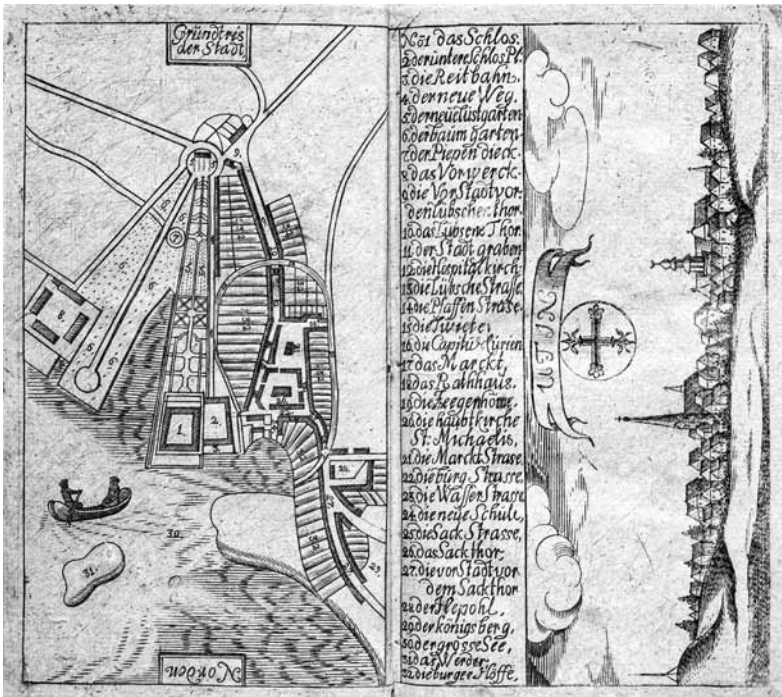 Grundtris
der Stadt
No1 das Schlos.
2 der untere Schlos Pl.
3. die Reitbahn.
4. der neue Weg.
5. der neue Lustgarten
6. der baum garten.
7. der Piepen dieck.
8. das Vorwerck.
9. die VorStadt vor
den Lübschen thor.
10. das Lübsene Thor.
11. der Stadt graben
12. die Hospital kirch.
13. die Lübsche Strasse.
14. die Pfaffen Strase.
15. die Twiete,
16. die Capitels Curien
17. das Marckt,
18. das Rathhaus.
19. die
20. die haubtkirche
St: Michaelis,
21. die Marckt Strase,
22. die burg Strasse,
23. die Wasser Strasse
24. die neue Schule,
25. die Sack Strasse,
26. das Sackthor,
27. die vor Stadt vor
dem Sackthor
28. der
29. der königsberg,
30. der grosse See,
31. das Werder,
32. die burger Höffe.
UTIN
Norden
1.
2.
3
6.
6.
7
8.
9.
24.
27
29.
30.
31.